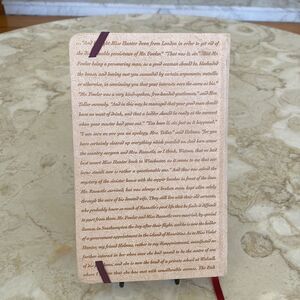 ... "And brought Miss Hunter down from London in order to get rid of
the disagreeable persistence of Mr. Fowler." "That was it." "But Mr.
Fowler being a persevering man, as a good seaman should be, blockaded
the house, and having met you succeeded by certain arguments, metallic
or otherwise, in convincing you that your interests were the same as his."
"Mr. Fowler was a very kind-spoken, free-handed gentleman," said Mrs.
Toller serenely. "And in this way he managed that your good man should
have no want of drink, and that a ladder should be ready at the moment
when your master had gone out." "You have it, sir, just as it happened."
"I am sure we owe you an apology, Mrs. Toller," said Holmes, "for you
have certainly cleared up everything which puzzled us. And here comes
the country surgeon and Mrs. Rucastle, so I think, Watson, that we had
best escort Miss Hunter back to Winchester, as it seems to me that our
locus standi now is rather a questionable one." And thus was solved the
mystery of the sinister house with the copper beeches in front of the door.
Mr. Rucastle survived, but was always a broken man, kept alive solely
through the care of his devoted wife. They still live with their old servants,
who probably know so much of Rucastle's past life that he finds it difficult
to part from them. Mr. Fowler and Miss Rucastle were married, by special
license, in Southampton the day after their flight, and he is now the holder
of a government appointment in the island of Mauritius. As to Miss Violet
Hunter, my friend Holmes, rather to my disappointment, manifested no
further interest in her when once she had ceased to be the centre of one
of his problems, and she is now the head of a private school at Walsall,
where I believe that she has met with considerable success. The End.